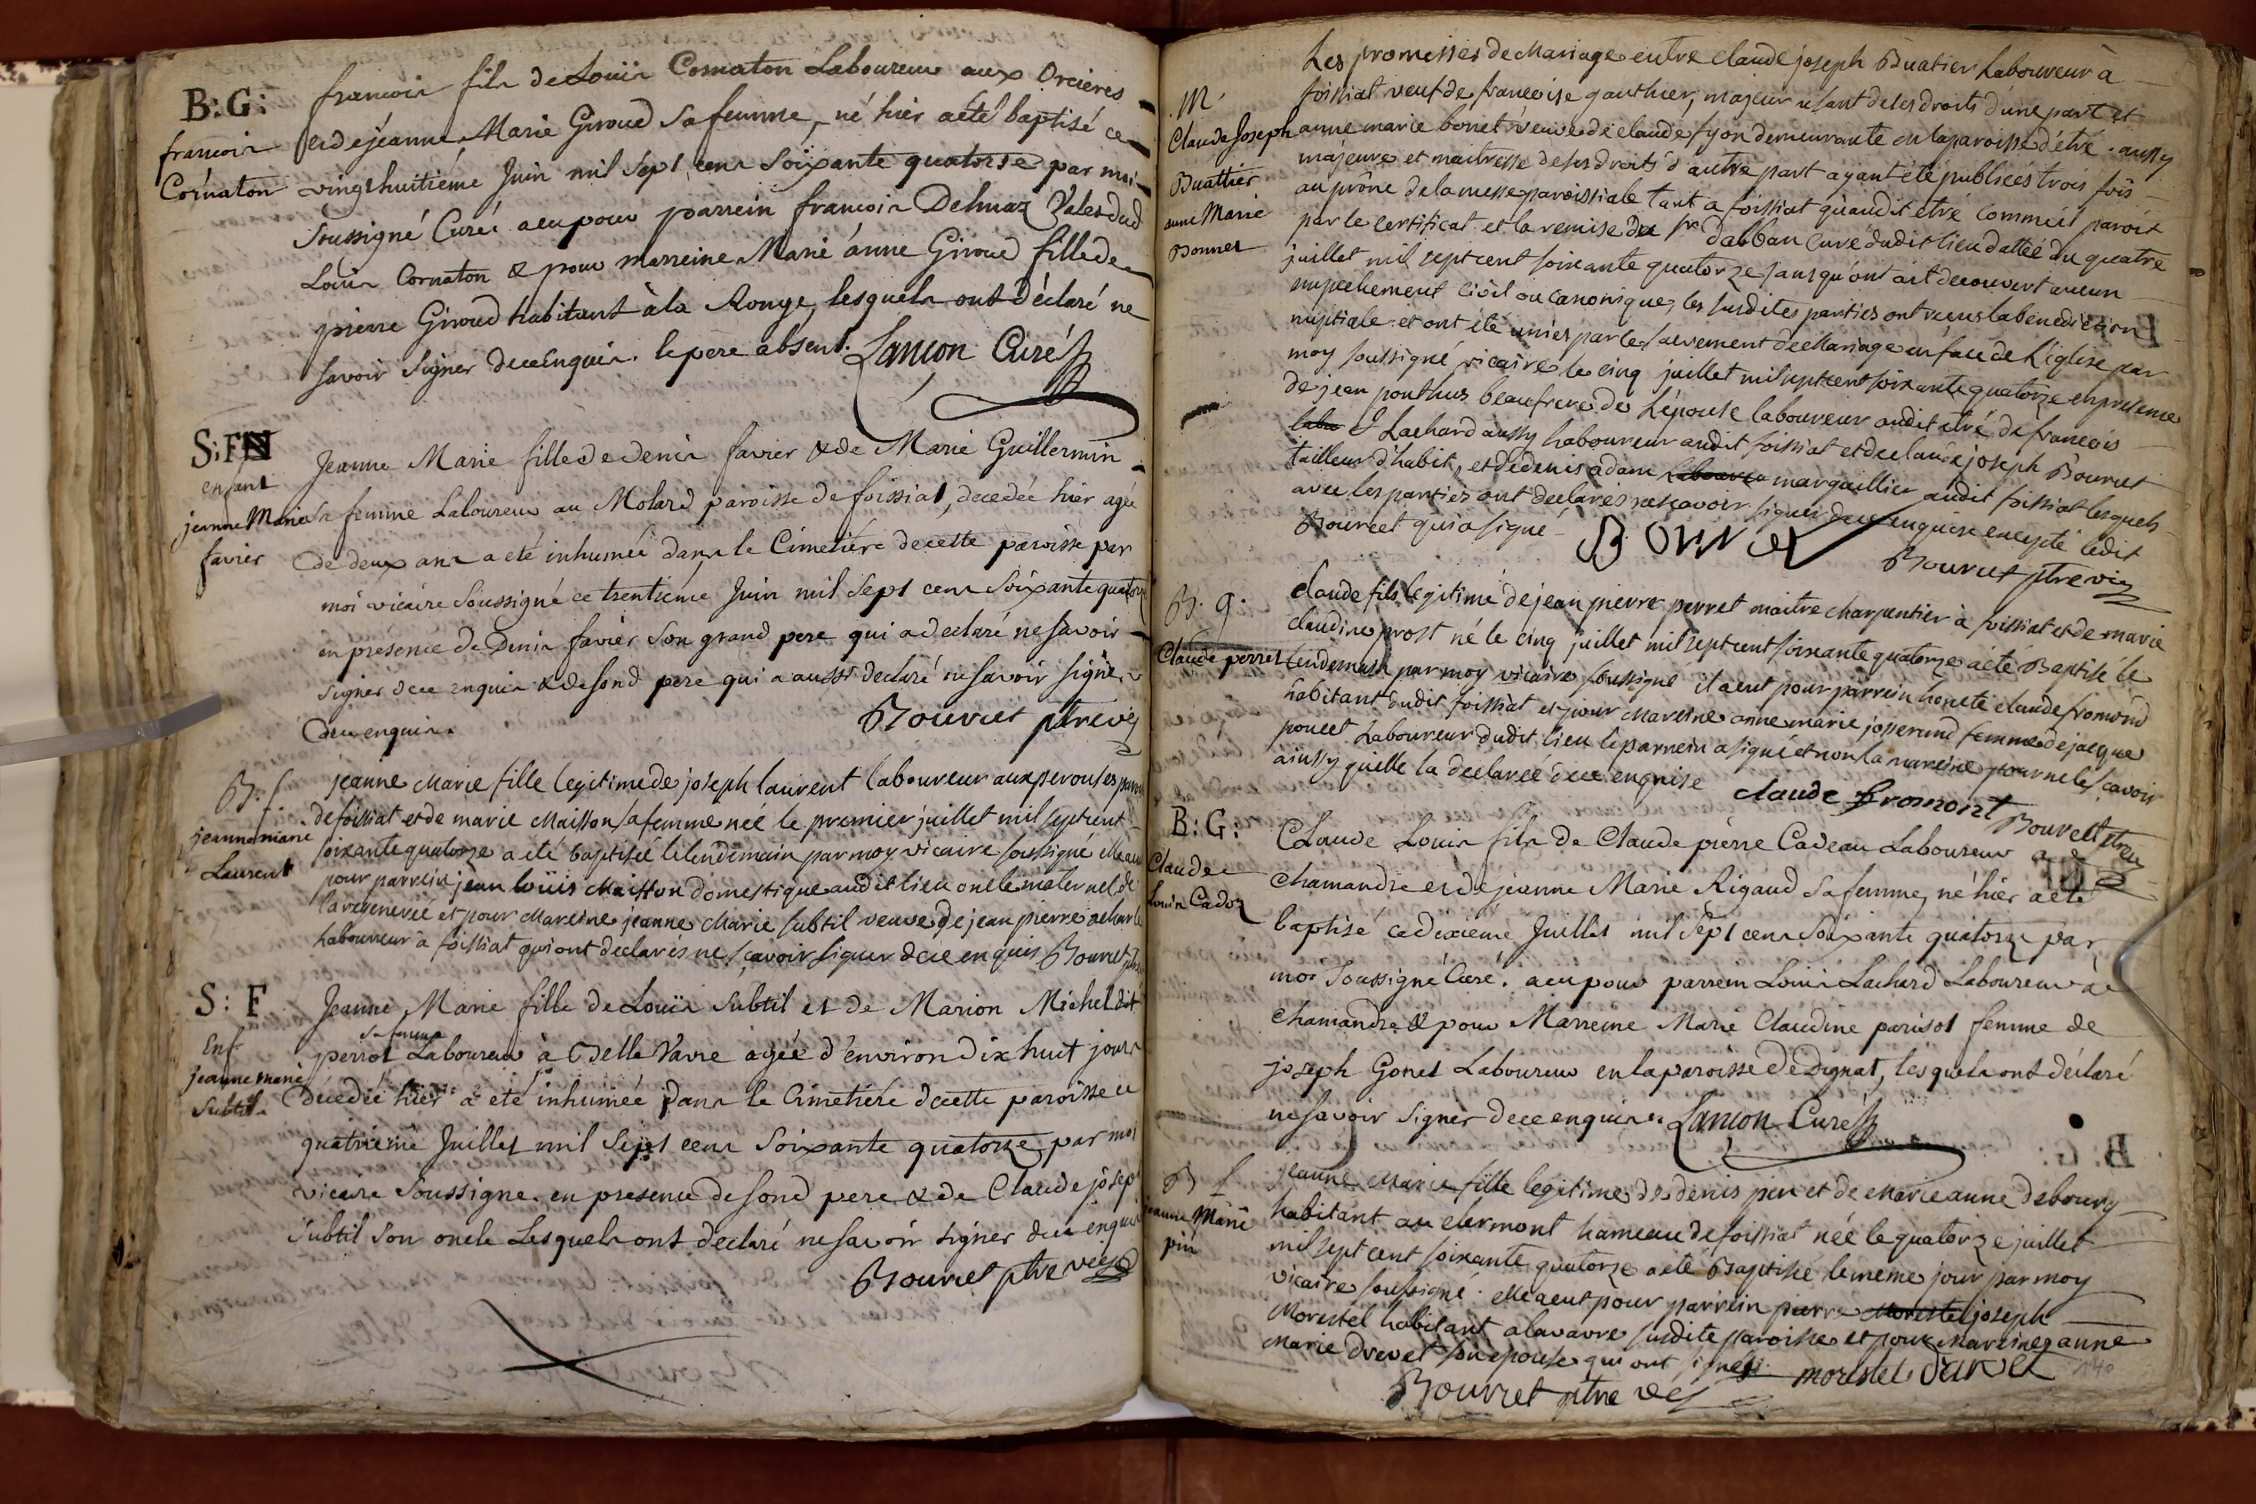 B: G:
francois
Cornaton
francois fils de Louis Cornaton Laboureur aux Orcieres
et de jeanne Marie Giroud sa femme, né hier a eté baptisé ce
vingt huitiéme Juin mil sept cens soixante quatorse par moi
soussigné Curé: a eu pour parrein francois Delmaz Valet dud
Louis Cornaton & pour marreine Marie anne Giroud fille de
pierre Giroud habitant à la Ronge, lesquels ont déclaré ne
savoir signer de ce enquis. le pere absent. Lancon Curé
S: F
enfant
jeanne Marie
favier
Jeanne Marie fille de denis favier & de Marie Guillermin
sa femme Laboureur au Molard paroisse de foissiat, decedée hier agée
de deux ans a eté inhumée dans le Cimetiére de cette paroisse par
moi vicaire soussigné ce trentieme Juin mil sept cens soixante quatorze
en presence de Denis favier son grand pere qui a declaré ne savoir
signer de ce enquis & de sond pere qui a aussi declaré ne savoir signer
de ce enquis.
Bouvret ptre vic
B. f.
jeanne marie
Laurent
jeanne Marie fille legitime de joseph laurent laboureur aux perouses paroisse
de foissiat et de marie Maisson sa femme née le premier juillet mil sept cent
soixante quatorze a eté baptisée le lendemain par moy vicaire soussigné elle a eu
pour parrein jean louis Maisson domestique audit lieu oncle maternel de
la regenereé et pour Mareine jeanne Marie subtil veuve de jean pierre
laboureur a foissiat qui ont declarés ne sçavoir signer de ce enquis Bouvret
S: F
Enf
jeanne marie
Subtil
Jeanne Marie fille de Louis Subtil et de Marion Michel dit
sa femme
perrot Laboureur à Delle Vavre agée d'environ dix huit jours
décedée hier a eté inhumée dans le Cimetiére de cette paroisse ce
quatriéme Juillet mil sept cens soixante quatorze par moi
vicaire soussigne. en presence de sond pere & de Claude joseph
subtil son oncle Lesquels ont declaré ne savoir signer de ce enquis
Bouvret ptre vic
M
Claude Joseph
Buathier
anne Marie
Bonnet
Les promesses de Mariage entre claude joseph Buatier laboureur à
foissiat veuf de francoise gauthier, majeur usant de ses droits d'une part et
anne marie bonet veuve de claude fyon demeurante en la paroisse d'étré aussy
majeure et maitresse de ses droits d'autre part ayant été publiées trois fois
au prône de la messe paroissiale tant a foissiat qu'audit etré comme il paroit
par le certificat et la remise du sr dalban curé dudit lieu dattée du quatre
juillet mil sept cent soixante quatorze sans qu'ont ait decouvert aucun
empechement civil ou canonique, les susdites parties ont recus la benediction
nuptiale et ont eté unies par le sacrement de Mariage en face de L'eglise par
moy soussigné vicaire le cinq juillet mil sept cent soixante quatorze en presence
de jean ponthus beaufrere de L'epouse laboureur audit etré de francois
Lachard aussy laboureur audit foissiat et de claude joseph Bouvret
tailleur d'habit, et de denis adam marguillier audit foissiat lesquels
avec les parties ont declarés ne sçavoir signer de ce enquise excepté ledit
Bouvret qui a signé Bouvret
Bouvret ptre vic
B. g.
Claude perret
claude fils legitime de jean pierre perret maitre charpentier à foissiat et de marie
claudine prost né le cinq juillet mil sept cent soixante quatorze a eté Baptisé le
lendemain par moy vicaire soussigné il a eut pour parrein honete claude fromond
habitant audit foissiat et pour Mareine anne marie josserand femme de jacque
poncet Laboureur dudit lieu le parrein a signé et non la mareine pour ne le sçavoir
ainssy quelle la declareé de ce enquise claude fromont
Bouvret ptre vic
B: G:
Claude
Louis Cadoz
Claude Louis fils de Claude pierre Cadeau Laboureur a
Chamandre et de jeanne Marie Rigaud sa femme, né hier a eté
baptisé ce dixieme Juillet mil sept cens soixante quatorze par
moi soussigné Curé. a eu pour parrein Louis Lachard Laboureur à
chamandre & pour Marreine Marie Claudine parisot femme de
joseph Gonet Laboureur en la paroisse de Dignat, lesquels ont déclaré
ne savoir signer de ce enquis. Lancon Curé
B f
jeanne Marie
pin
jeanne Marie fille legitime de denis pin et de Marie anne debourg
habitant au clermont hameau de foissiat née le quatorze juillet
mil sept cent soixante quatorze a eté Baptisée le meme jour par moy
vicaire soussigné. elle a eut pour parrein pierre joseph
Morestel habitant a la vavre susdite paroisse et pour Mareine anne
Marie drevet son epouse qui ont signés. morestel drevet
Bouvret ptre vic
140